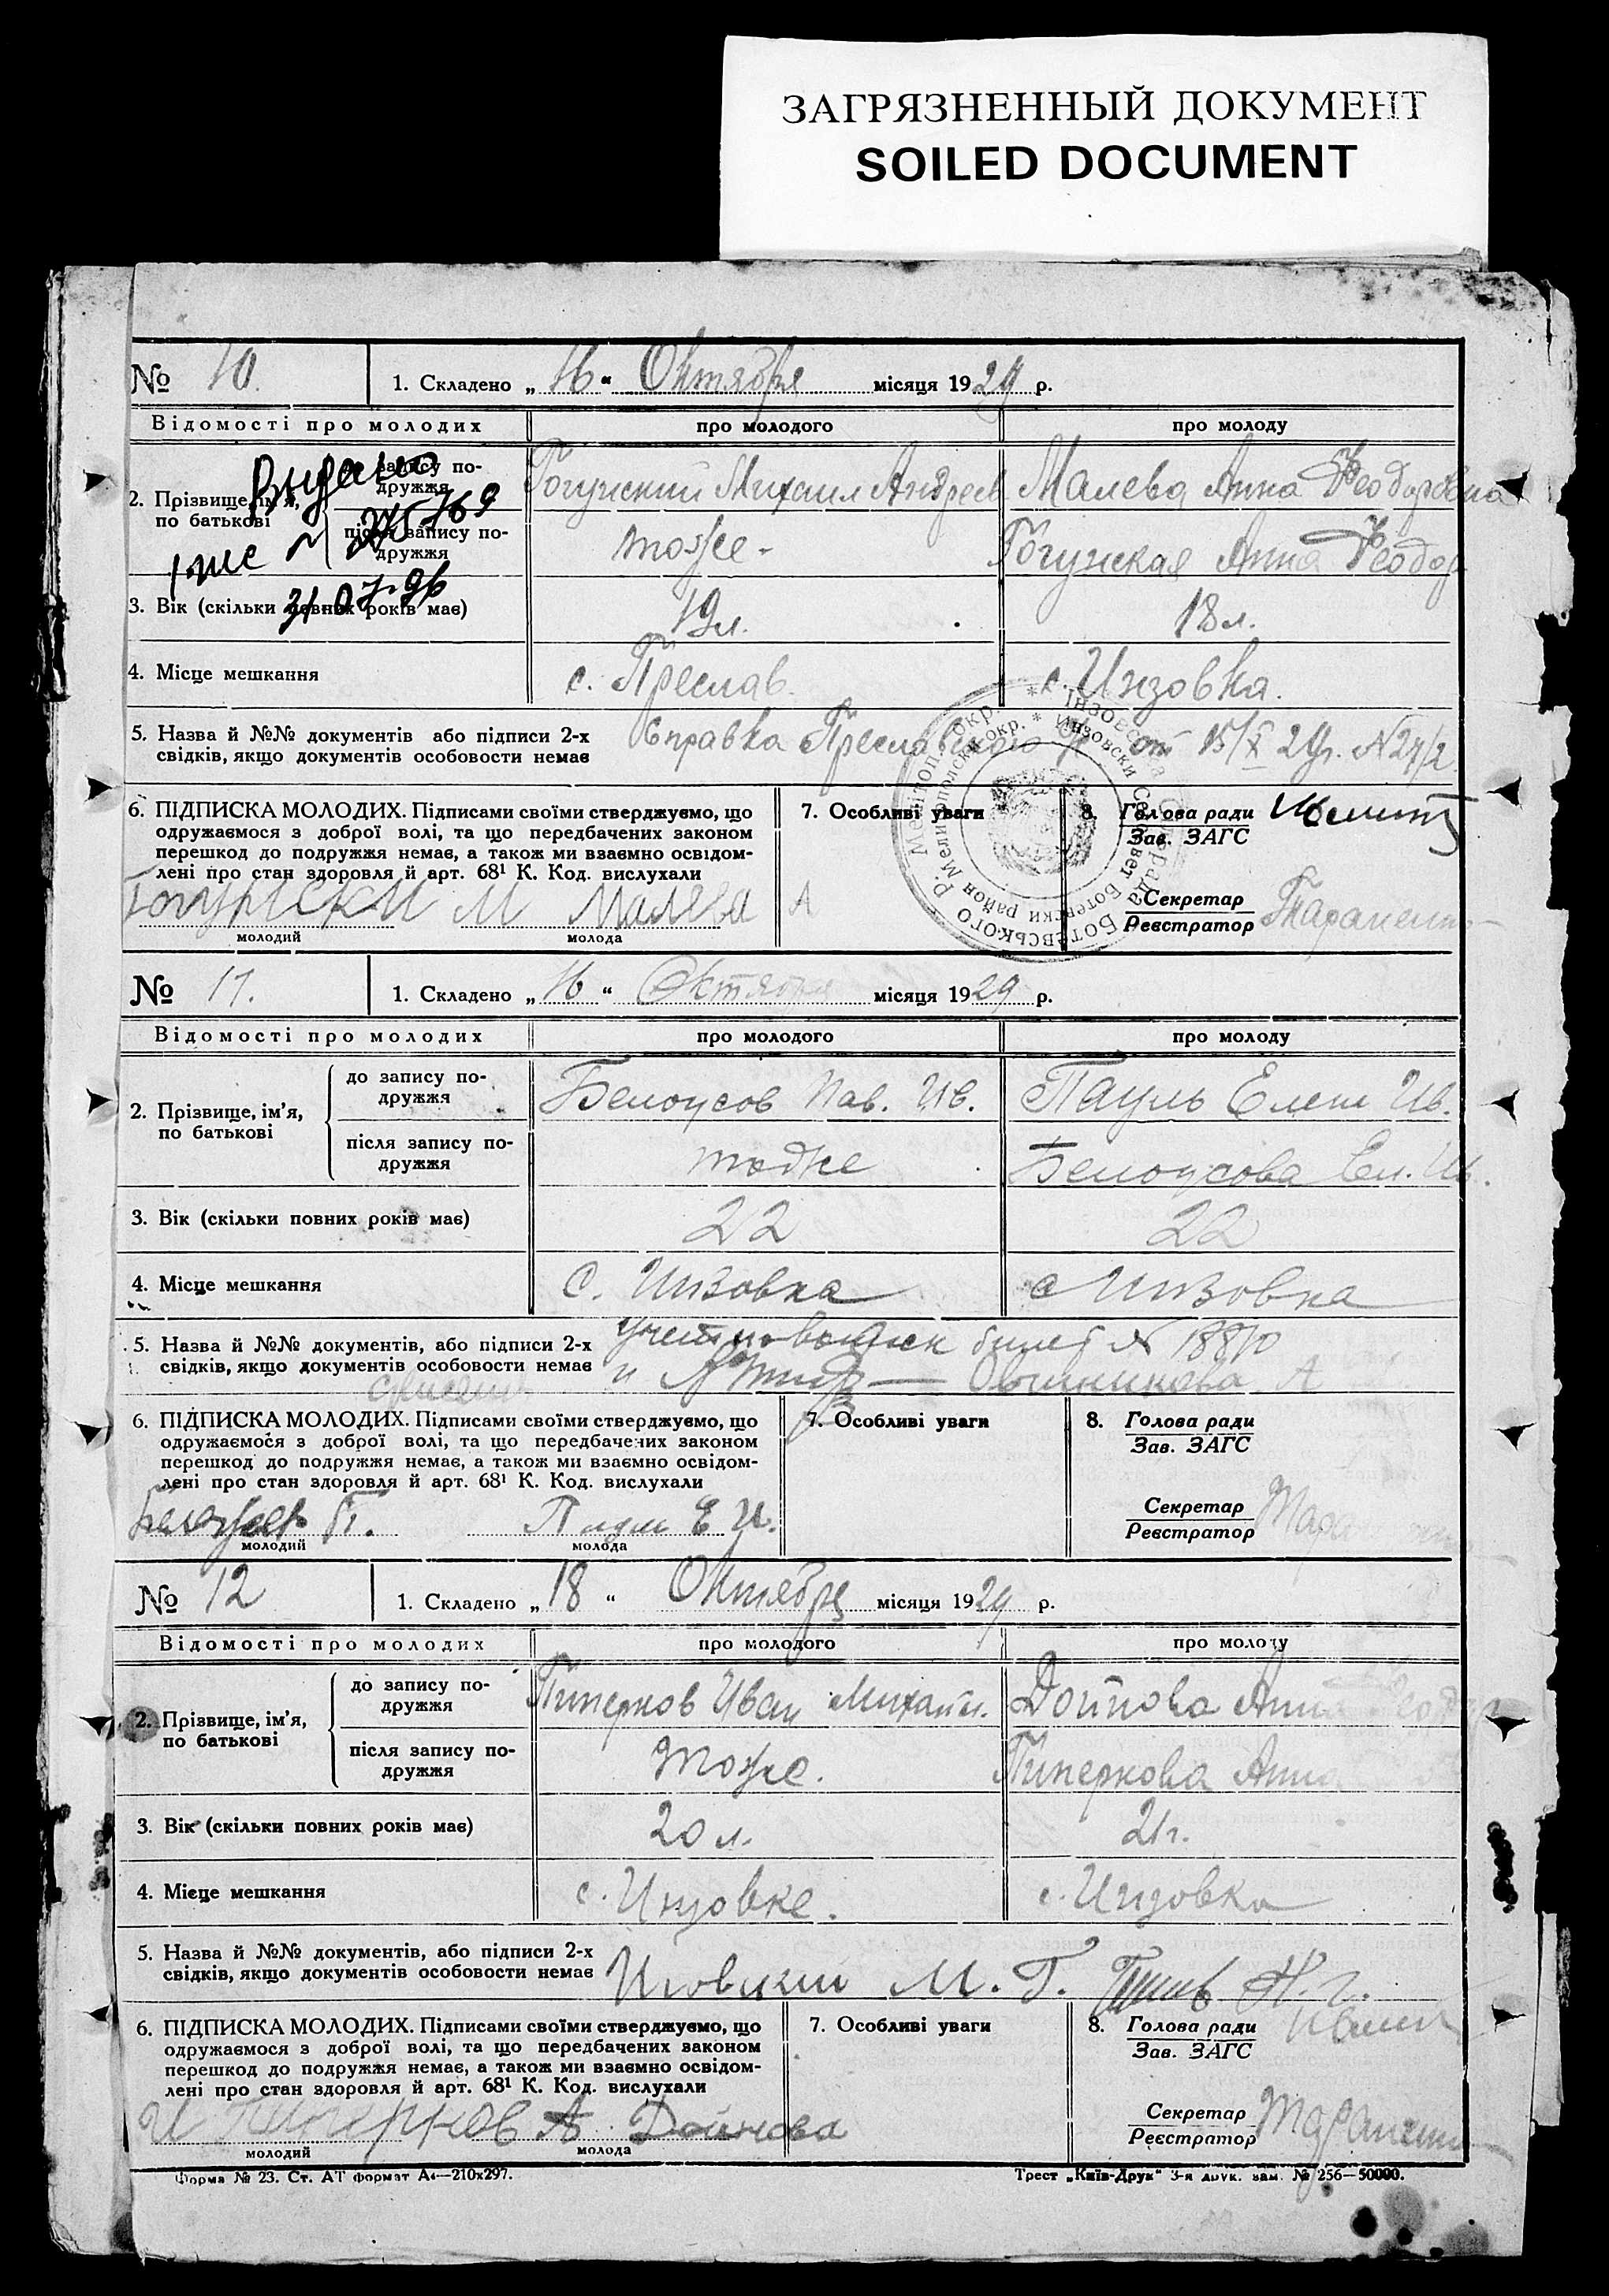 ЗАГРЯЗНЕННЫЙ ДОКУМЕНТ
SOILED DOCUMENT
№ 10. 1. Складено „16“ Октября місяця 1929 р.
Відомості про молодих про молодого про молоду
2. Прізвище, ім'я, по батькові
до запису подружжя Гогунский Михаил Андреев Малева Анна Феодоровна
після запису подружжя тоже - Гогунская Анна Феодор
Видано
31.07.96
3. Вік (скільки повних років має) 19 л. 18 л.
4. Місце мешкання с. Преслав. с. Инзовка.
5. Назва й №№ документів або підписи 2-х
свідків, якщо документів особовости немає
Справка Преславского от 15/X 29г. N 27/2
6. ПІДПИСКА МОЛОДИХ. Підписами своїми стверджуємо, що
одружаємося з доброї волі, та що передбачених законом
перешкод до подружжя немає, а також ми взаємно освідом-
лені про стан здоровля й арт. 68¹ К. Код. вислухали
М Малева А
молодий молода
7. Особливі уваги
8. Голова ради
Зав. ЗАГС
Секретар
Реєстратор
№ 11. 1. Складено „16“ Октября місяця 1929 р.
Відомості про молодих про молодого про молоду
2. Прізвище, ім'я,
по батькові
до запису по-
дружжя Белоусов Пав. Ив. Пауль Елен Ив.
після запису по-
дружжя тоже Белоусова Ел. Ив.
3. Вік (скільки повних років має) 22 22
4. Місце мешкання с. Инзовка с Инзовка
5. Назва й №№ документів, або підписи 2-х
свідків, якщо документів особовости немає
билет N 18810
Овчинникова А
6. ПІДПИСКА МОЛОДИХ. Підписами своїми стверджуємо, що
одружаємося з доброї волі, та що передбачених законом
перешкод до подружжя немає, а також ми взаємно освідом-
лені про стан здоровля й арт. 68¹ К. Код. вислухали
П. Е И.
молодий молода
7. Особливі уваги
8. Голова ради
Зав. ЗАГС
Секретар
Реєстратор
№ 12 1. Складено „18“ Октября місяця 1929 р.
Відомості про молодих про молодого про молоду
2. Прізвище, ім'я,
по батькові
до запису по-
дружжя Пиперков Иван Михайл. Дойнова Анна
після запису по-
дружжя Тоже. Пиперкова Анна
3. Вік (скільки повних років має) 20 л. 21 г.
4. Місце мешкання с. Инзовке. с. Инзовка
5. Назва й №№ документів, або підписи 2-х
свідків, якщо документів особовости немає
М. Г.
6. ПІДПИСКА МОЛОДИХ. Підписами своїми стверджуємо, що
одружаємося з доброї волі, та що передбачених законом
перешкод до подружжя немає, а також ми взаємно освідом-
лені про стан здоровля й арт. 68¹ К. Код. вислухали
И Пиперков А Дойнова
молодий молода
7. Особливі уваги
8. Голова ради
Зав. ЗАГС
Секретар
Реєстратор
Форма № 23. Ст. АТ формат А4—210х297.
Трест „Київ-Друк“ 3-я друк. зам. № 256—50000.